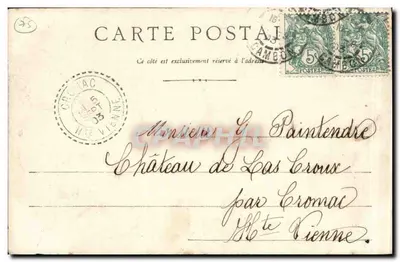 75
CARTE POSTALE
Ce côté est exclusivement réservé à l'adresse
5 5
CROMAC
5
03
HTE VIENNE
Monsieur G. Paintendre
Château de Las Croux
par Cromac
Hte Vienne